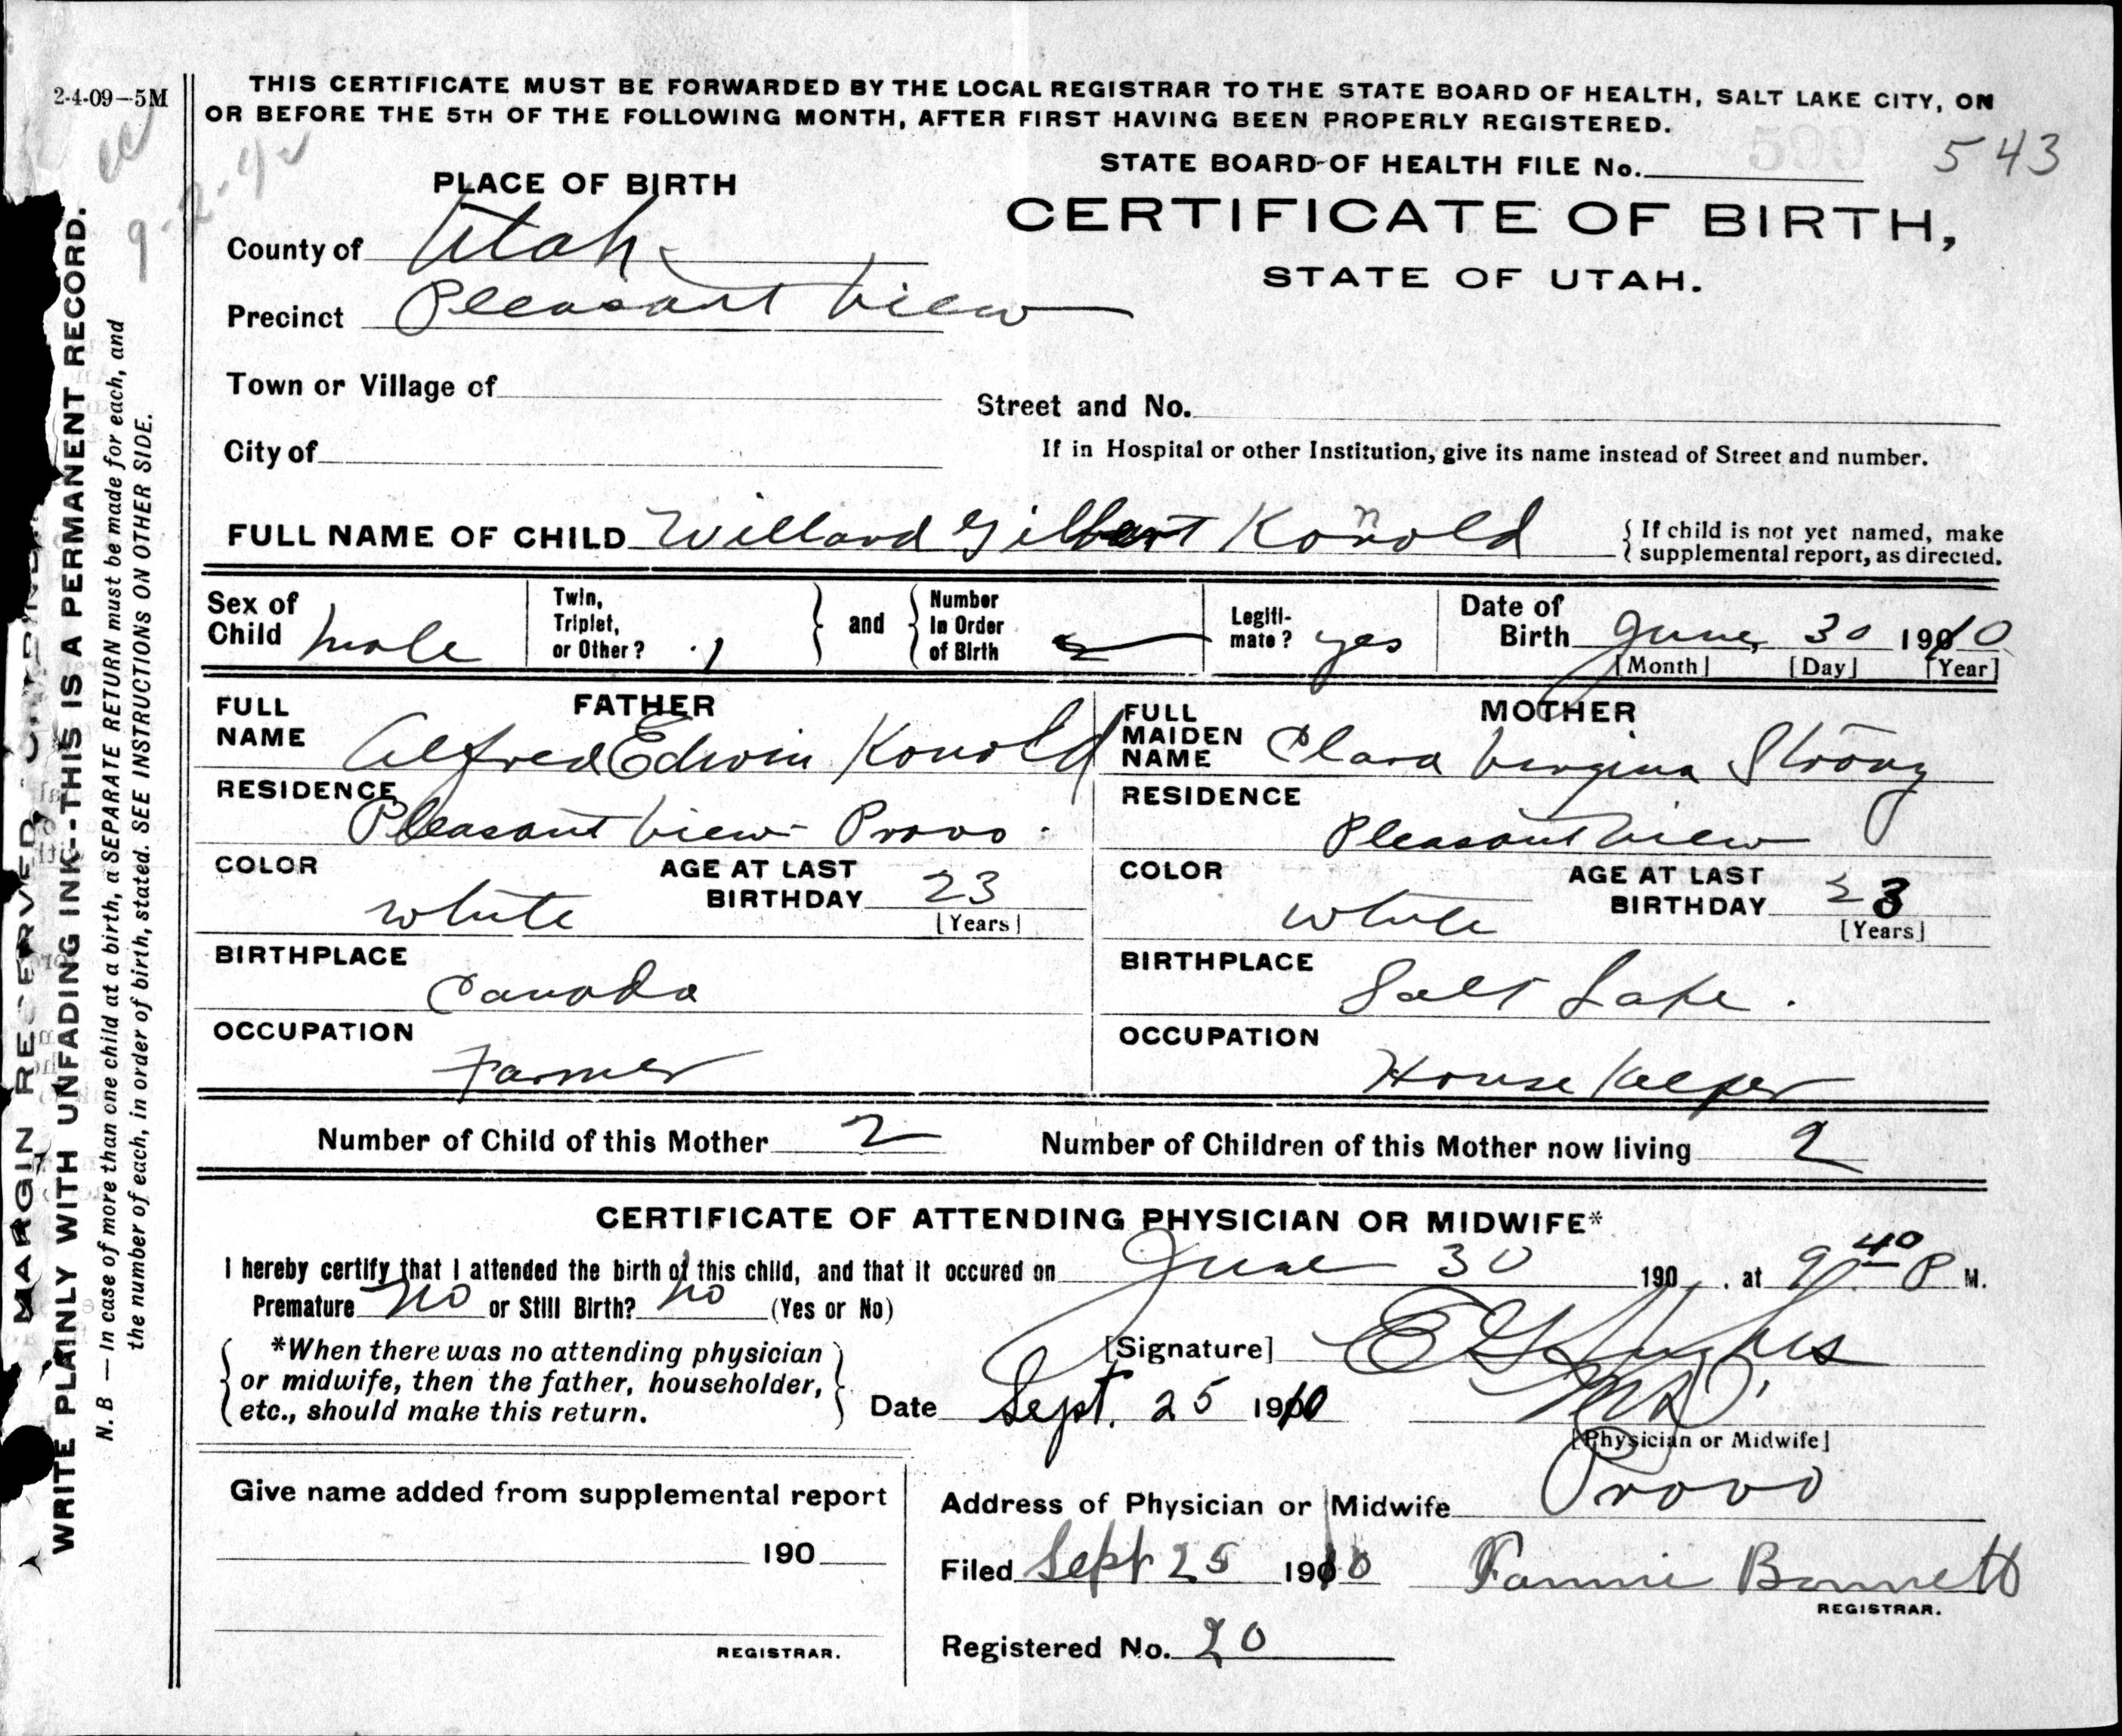 2-4-09–5M
THIS CERTIFICATE MUST BE FORWARDED BY THE LOCAL REGISTRAR TO THE STATE BOARD OF HEALTH, SALT LAKE CITY, ON
OR BEFORE THE 5TH OF THE FOLLOWING MONTH, AFTER FIRST HAVING BEEN PROPERLY REGISTERED.
9-2-42
STATE BOARD OF HEALTH FILE No. 599 543
PLACE OF BIRTH
CERTIFICATE OF BIRTH,
STATE OF UTAH.
County of Utah
Precinct Pleasant View
Town or Village of
Street and No.
City of
If in Hospital or other Institution, give its name instead of Street and number.
FULL NAME OF CHILD Willard Gilbert Konold
{ If child is not yet named, make
{ supplemental report, as directed.
Sex of Child male
Twin, Triplet, or Other? 1
} and {
Number In Order of Birth
Legiti-mate? yes
Date of Birth June 30 1910
[Month] [Day] [Year]
FATHER
FULL NAME Alfred Edwin Konold
RESIDENCE Pleasant View Provo.
COLOR white
AGE AT LAST BIRTHDAY 23
[Years]
BIRTHPLACE Canada
OCCUPATION Farmer
MOTHER
FULL MAIDEN NAME Clara Virgina Strong
RESIDENCE Pleasant View
COLOR white
AGE AT LAST BIRTHDAY 23
[Years]
BIRTHPLACE Salt Lake.
OCCUPATION House Keeper
Number of Child of this Mother 2
Number of Children of this Mother now living 2
CERTIFICATE OF ATTENDING PHYSICIAN OR MIDWIFE*
I hereby certify that I attended the birth of this child, and that it occured on June 30 190 , at 9 40 P M.
Premature No or Still Birth? No (Yes or No)
*When there was no attending physician
or midwife, then the father, householder,
etc., should make this return.
[Signature] E G Hughes
MD
Date Sept. 25 1910
[Physician or Midwife]
Give name added from supplemental report
190
REGISTRAR.
Address of Physician or Midwife Provo
Filed Sept 25 1910 Fannie Bonnett
REGISTRAR.
Registered No. 20
MARGIN RESERVED
WRITE PLAINLY WITH UNFADING INK--THIS IS A PERMANENT RECORD.
N. B — In case of more than one child at a birth, a SEPARATE RETURN must be made for each, and
the number of each, in order of birth, stated. SEE INSTRUCTIONS ON OTHER SIDE.